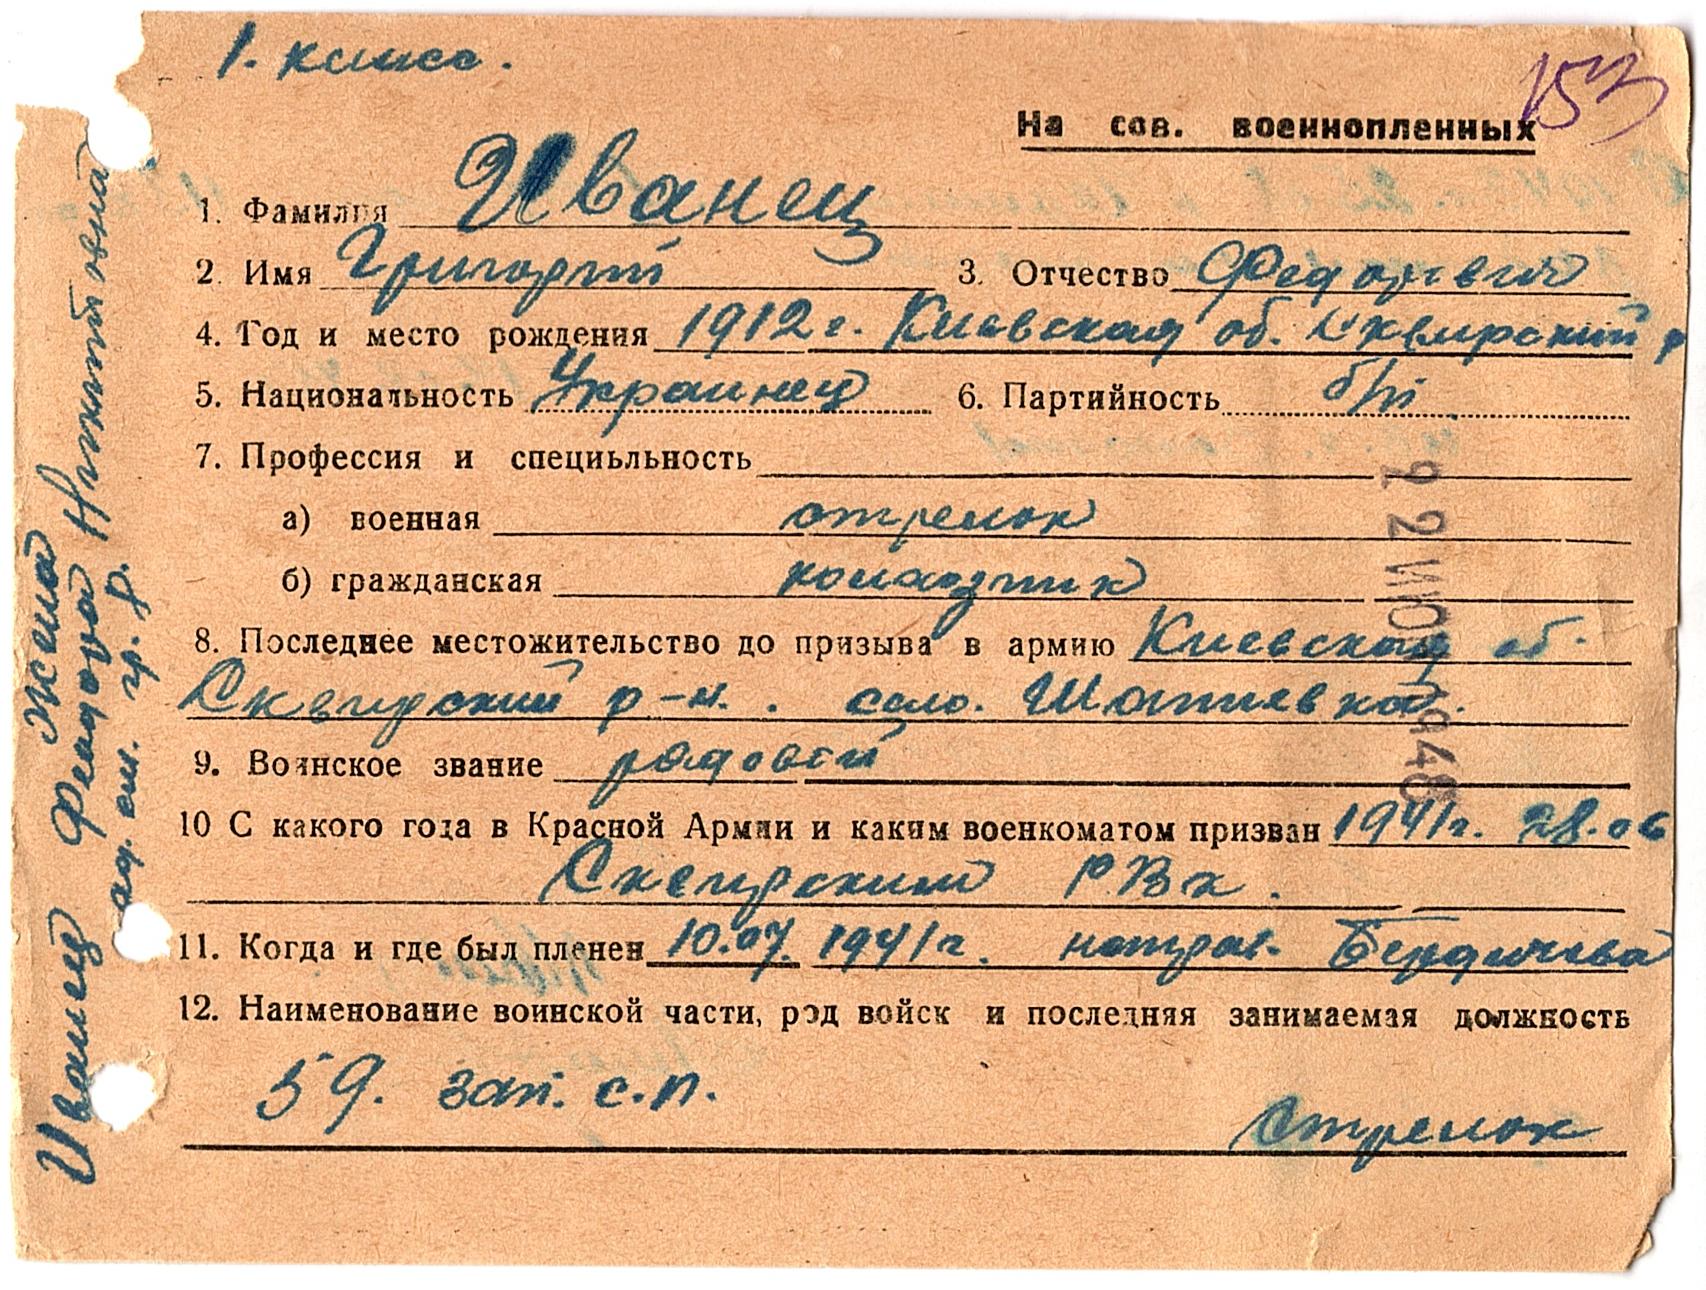 1. класс.
153
На сов. военнопленных
1. Фамилия Иванец
2. Имя Григорий 3. Отчество Федорович
4. Год и место рождения 1912 г. Киевская об. Сквирский р
5. Национальность Украинец 6. Партийность б/п
7. Профессия и специьльность
а) военная стрелок
б) гражданская колхозник
8. Последнее местожительство до призыва в армию Киевская об.
Сквирский р-н. село.
9. Воинское звание рядовой
10 С какого года в Красной Армии и каким военкоматом призван 1941 г. 28.06
Сквирским РВк.
11. Когда и где был пленен 10.07. 1941 г. направ. Бердичева
12. Наименование воинской части, род войск и последняя занимаемая должность
59. зап. с.п.
стрелок
Жена
Иванец Федора Никитовна
22 ИЮН 1948